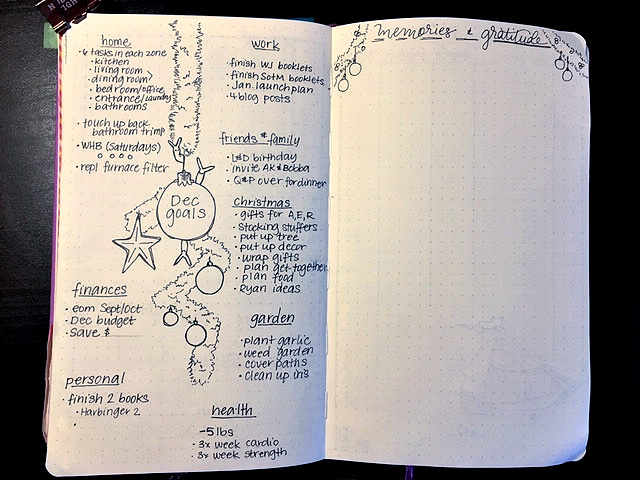 home
• 6 tasks in each zone
• kitchen
• living room
• dining room
• bedroom/office
• entrance/laundry
• bathrooms
• touch up back
bathroom trim
• WHB (Saturdays)
• repl furnace filter
work
• finish WJ booklets
• finish SotM booklets
• Jan. launch plan
• 4 blog posts
friends & family
• L&D birthday
• invite AK & Bobba
• Q&P over for dinner
Dec
goals
Christmas
• gifts for A, E, R
• stocking stuffers
• put up tree
• put up decor
• wrap gifts
• plan get-together
• plan food
• Ryan ideas
finances
• eom Sept/Oct
• Dec budget
• save $
garden
• plant garlic
• weed garden
• cover paths
• clean up
personal
• finish 2 books
• Harbinger 2
health
-5 lbs
• 3x week cardio
• 3x week strength
memories & gratitude